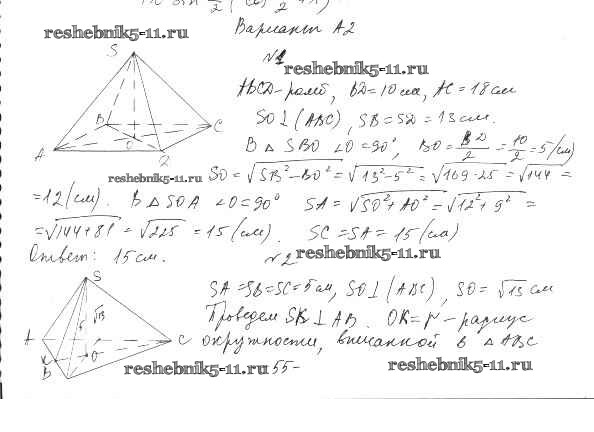 Вариант А2
reshebnik5-11.ru
№1
reshebnik5-11.ru
ABCD - ромб, BD = 10 см, AC = 18 см
SO ⊥ (ABC), SB = SD = 13 см.
В △ SBO ∠O = 90°, BO = BD/2 = 10/2 = 5 (см)
reshebnik5-11.ru
SO = √SB² - BO² = √13² - 5² = √169 - 25 = √144 =
= 12 (см). В △ SOA ∠O = 90° SA = √SO² + AO² = √12² + 9² =
= √144 + 81 = √225 = 15 (см). SC = SA = 15 (см)
Ответ: 15 см.
№2
reshebnik5-11.ru
SA = SB = SC = 5 см, SO ⊥ (ABC), SO = √13 см
Проведем SK ⊥ AB. OK = r - радиус
окружности, вписанной в △ ABC
reshebnik5-11.ru
55-
reshebnik5-11.ru
S
A
B
C
O
S
√13
A
K
B
O
C